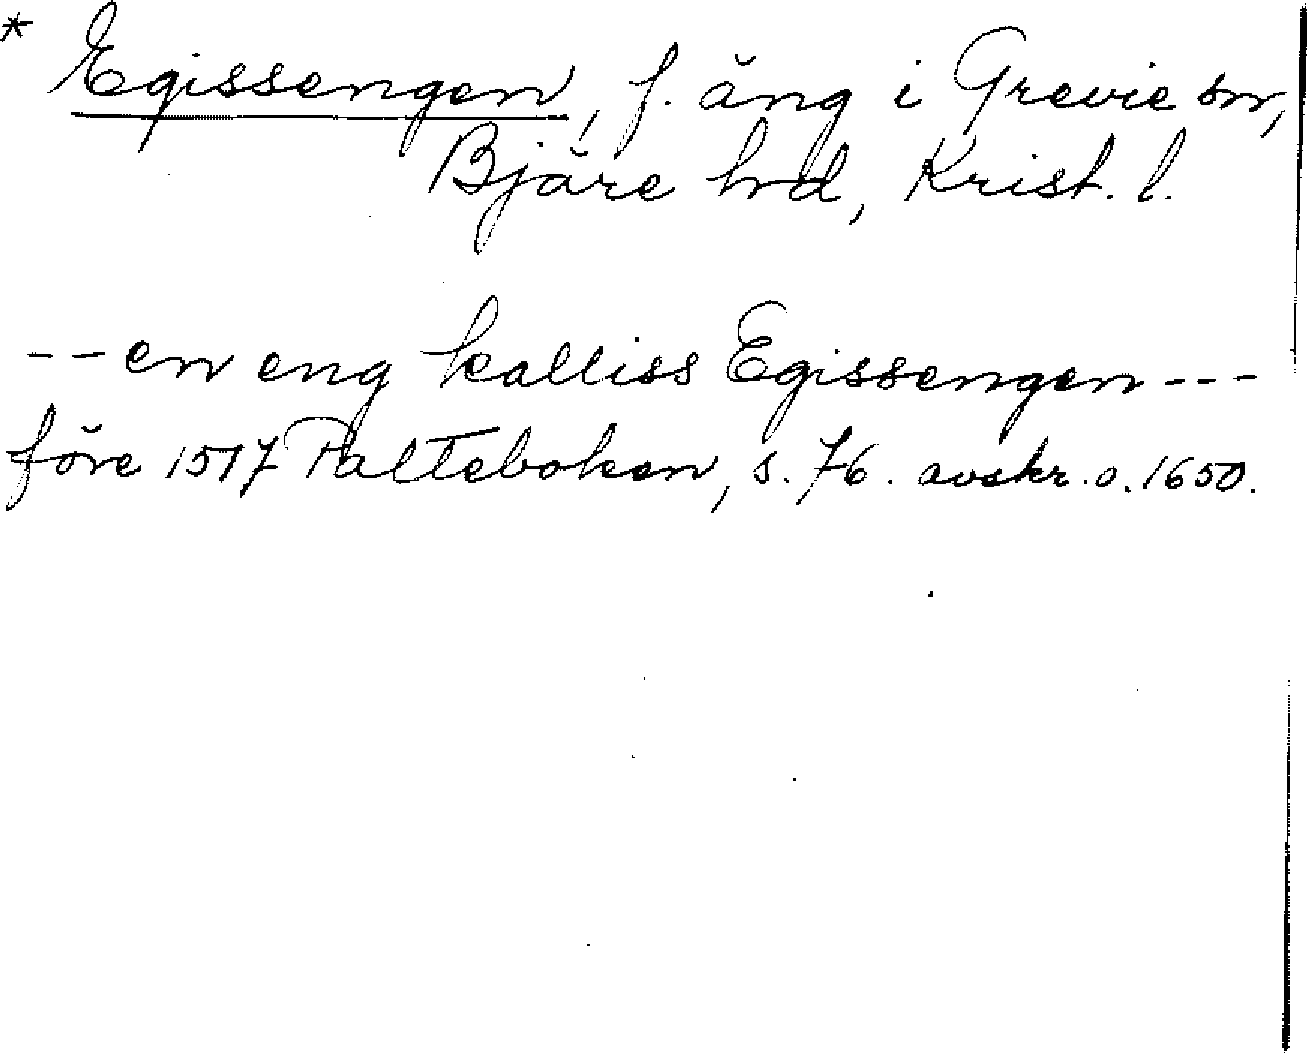 * Egissengen, f. äng i Grevie sn,
Bjäre hrd, Krist. l.
-- en eng kalliss Egissengen ---
före 1517 Palteboken, s. 76. avskr. o. 1650.